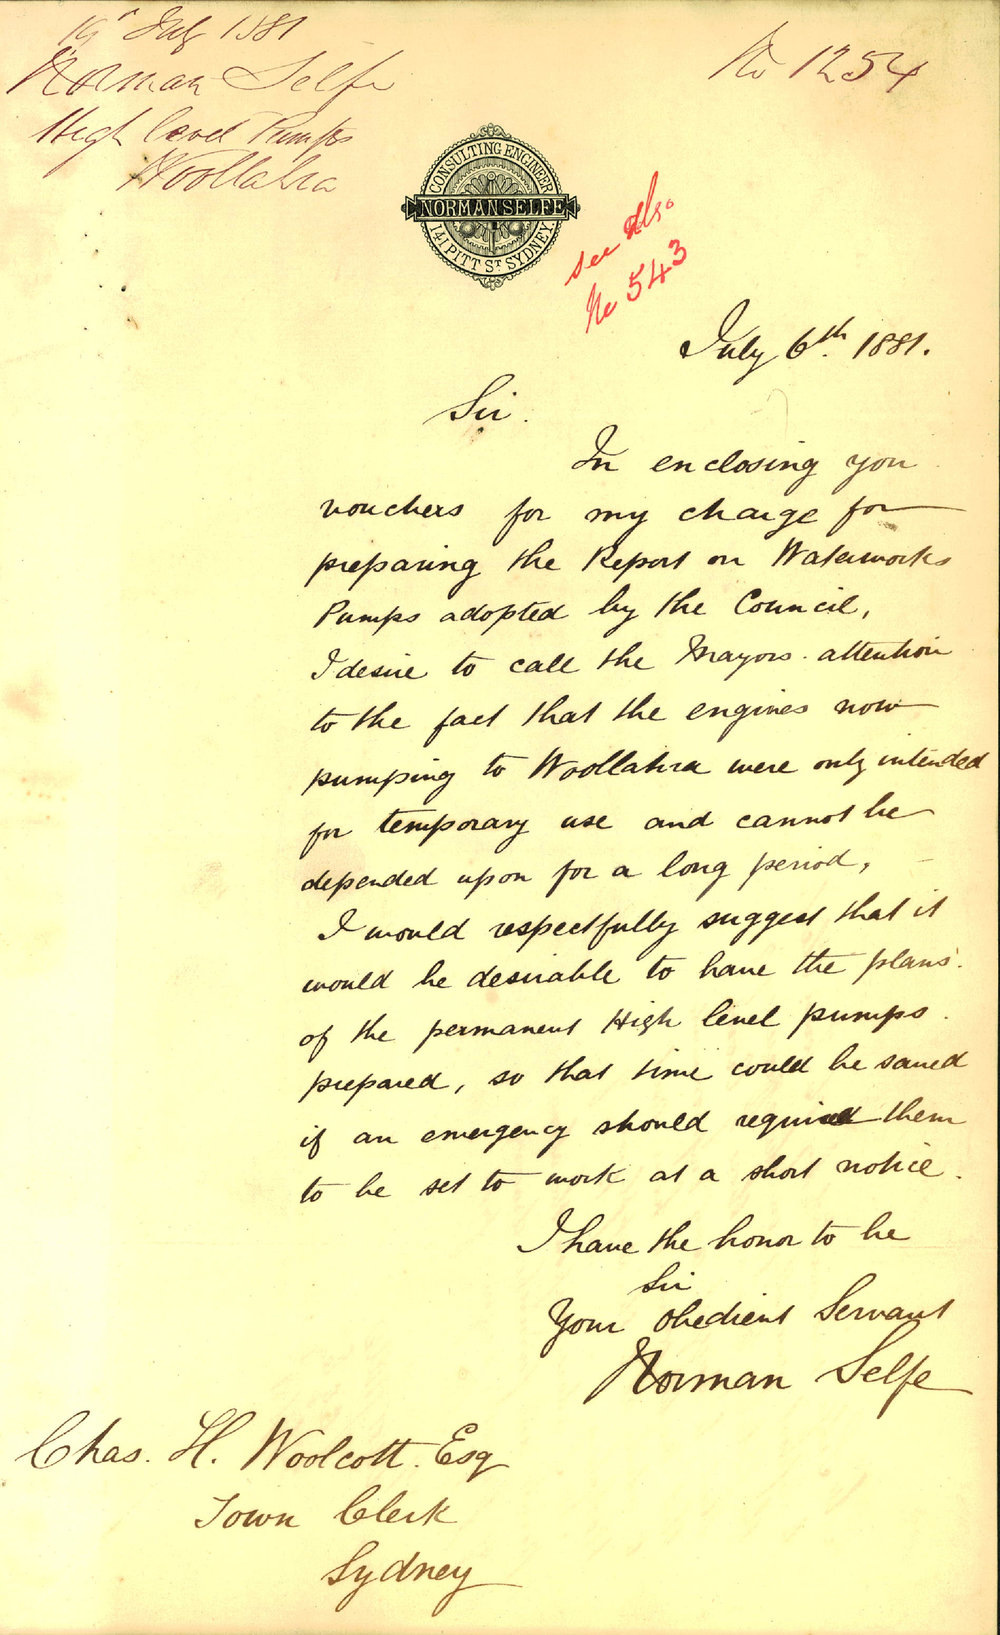 19th July 1881
Norman Selfe
High level Pumps
Woollahra
No 1254
CONSULTING ENGINEER
NORMAN SELFE
141 PITT ST SYDNEY
see also
No 543
July 6th. 1881.
Sir.
In enclosing you
vouchers for my charge for
preparing the Report on Waterworks
Pumps adopted by the Council,
I desire to call the Mayors attention
to the fact that the engines now
pumping to Woollahra were only intended
for temporary use and cannot be
depended upon for a long period,
I would respectfully suggest that it
would be desirable to have the plans
of the permanent High level pumps
prepared, so that time could be saved
if an emergency should required them
to be set to work at a short notice.
I have the honor to be
Sir
Your obedient Servant
Norman Selfe
Chas. H. Woolcott. Esq
Town Clerk
Sydney